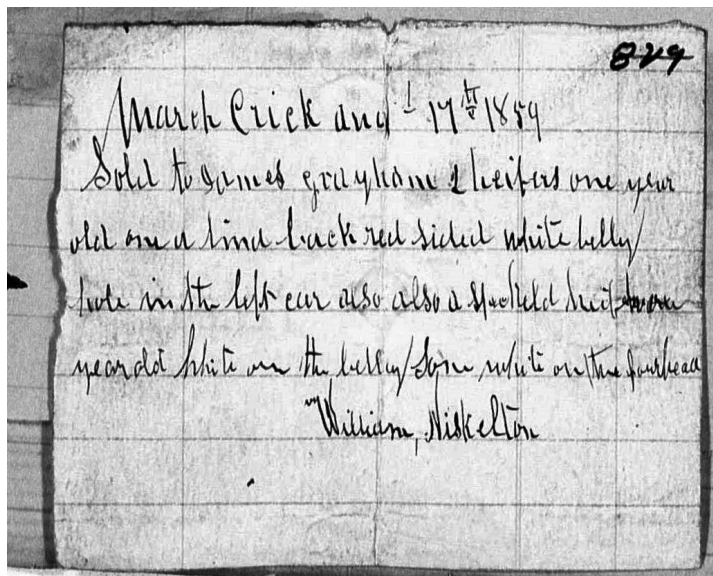 829
March Crick aug 17th 1859
Sold to James grayham 2 heifers one year
old one a lind back red sided white belly
hole in the left ear also also a speckeld heif one
year old white on the belly some white on the fourhead
William Niskelton